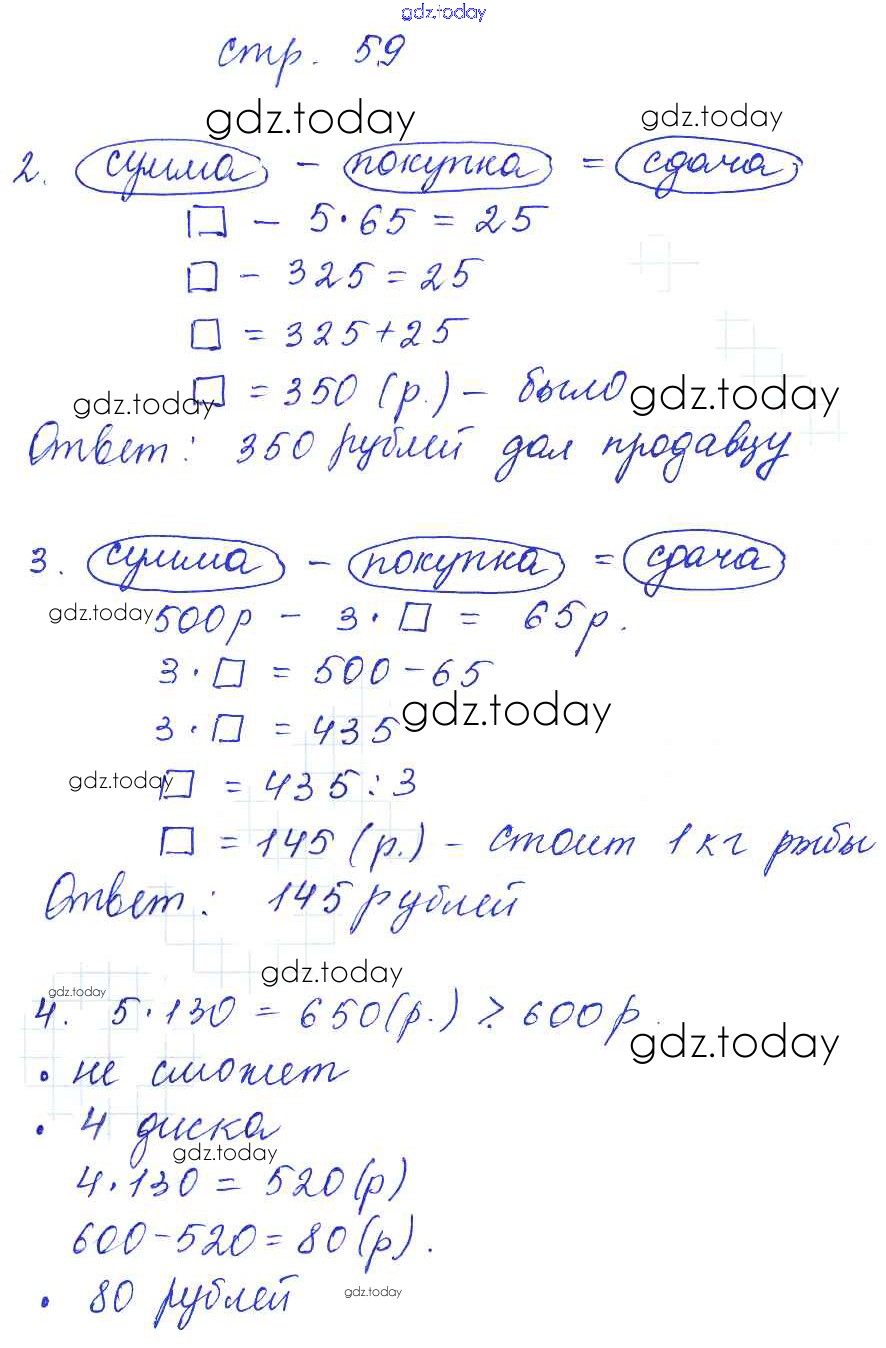 gdz.today
стр. 59
gdz.today gdz.today
2. сумма - покупка = сдача
□ - 5·65 = 25
□ - 325 = 25
□ = 325+25
□ = 350 (р.) - было
gdz.today gdz.today
Ответ: 350 рублей дал продавцу
3. сумма - покупка = сдача
gdz.today
500р - 3·□ = 65р.
3·□ = 500-65
3·□ = 435
gdz.today
□ = 435:3
gdz.today
□ = 145 (р.) - стоит 1 кг рыбы
Ответ: 145 рублей
gdz.today
gdz.today
4. 5·130 = 650(р.) > 600р.
gdz.today
· не сможет
· 4 диска
gdz.today
4·130 = 520(р)
600-520=80(р).
· 80 рублей
gdz.today